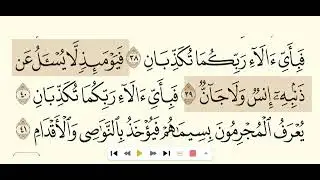 فَبِأَيِّ ءَالَآءِ رَبِّكُمَا تُكَذِّبَانِ ٣٨ فَيَوْمَئِذٍ لَّا يُسْـَٔلُ عَن
ذَنۢبِهِۦٓ إِنسٌ وَلَا جَآنٌّ ٣٩ فَبِأَيِّ ءَالَآءِ رَبِّكُمَا تُكَذِّبَانِ ٤٠
يُعْرَفُ ٱلْمُجْرِمُونَ بِسِيمَٰهُمْ فَيُؤْخَذُ بِٱلنَّوَٰصِى وَٱلْأَقْدَامِ ٤١